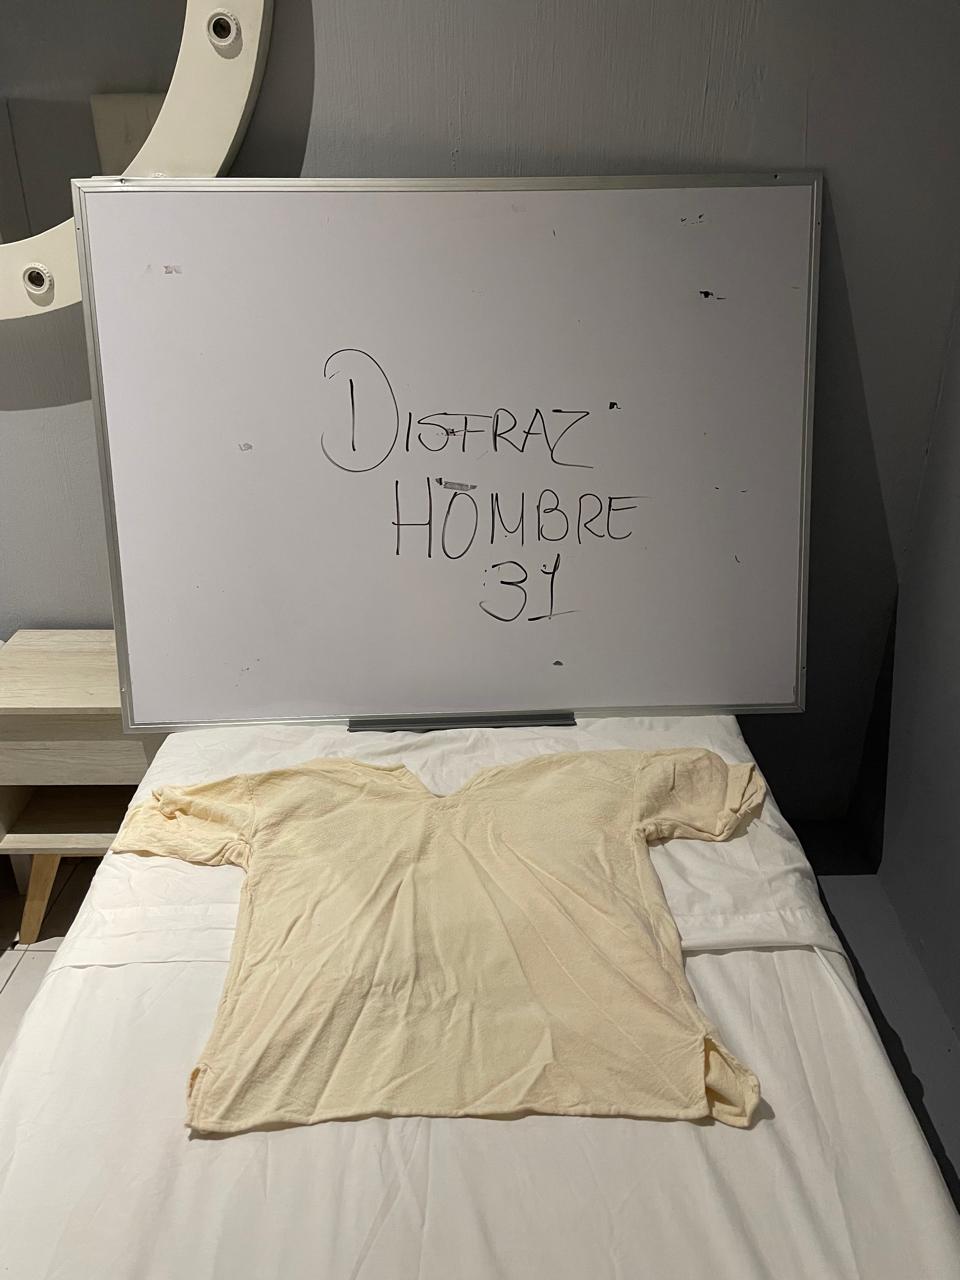 DISFRAZ
HOMBRE
31